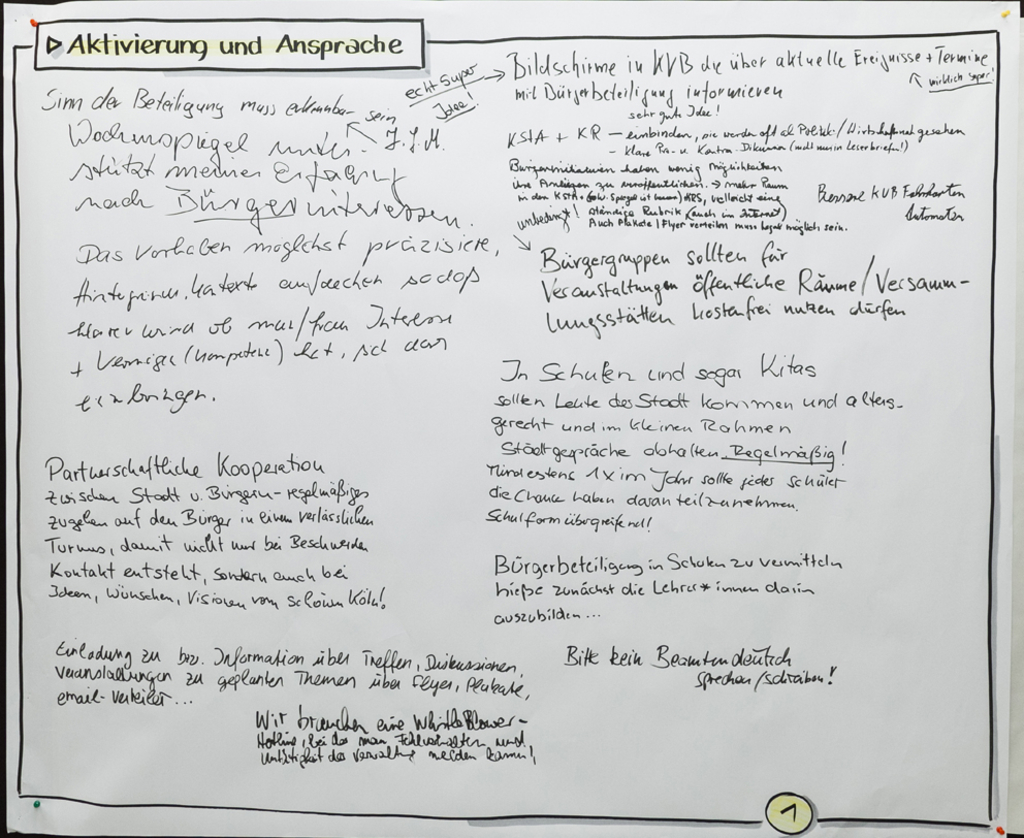 Aktivierung und Ansprache
Sinn der Beteiligung muss erkennbar sein
Wochenspiegel unter-
stützt meiner Erfahrung
nach Bürgerinteressen.
Das Vorhaben möglichst präzisieren,
Hintergründe, Kontexte aufdecken sodass
klarer wird ob man/frau Interesse
+ Vermögen (Kompetenz) hat, sich darin
einzubringen.
Partnerschaftliche Kooperation
zwischen Stadt u. Bürgern - regelmäßiges
zugehen auf den Bürger in einem verlässlichen
Turnus, damit nicht nur bei Beschwerden
Kontakt entsteht, sondern auch bei
Ideen, Wünschen, Visionen vom schönen Köln!
Einladung zu bzw. Information über Treffen, Diskussionen,
Veranstaltungen zu geplanten Themen über Flyer, Plakate,
email-Verteiler...
Wir brauchen eine WhistleBlower-
Hotline, bei der man Fehlverhalten und
Untätigkeit der Verwaltung melden kann!
echt super
Idee!
Bildschirme in KVB die über aktuelle Ereignisse + Termine
mit Bürgerbeteiligung informieren
wirklich super!
sehr gute Idee!
KStA + KR - einbinden, sie werden oft als Politik/Wirtschaftsnah gesehen
- klare Pro- u. Kontra-Diskussion (nicht nur in Leserbriefen!)
Bürgerinitiativen haben wenig Möglichkeiten
ihre Anliegen zu veröffentlichen. → mehr Raum
in den KStA + KRS, vielleicht eine
ständige Rubrik (auch im Internet)
Auch Plakate/Flyer verteilen muss legal möglich sein.
unbedingt!
Bessere KVB Fahrkarten
Automaten
Bürgergruppen sollten für
Veranstaltungen öffentliche Räume/Versamm-
lungsstätten kostenfrei nutzen dürfen
In Schulen und sogar Kitas
sollten Leute der Stadt kommen und alters-
gerecht und im kleinen Rahmen
Stadtgespräche abhalten. Regelmäßig!
Mindestens 1x im Jahr sollte jedes Schüler
die Chance haben daran teilzunehmen.
Schulform übergreifend!
Bürgerbeteiligung in Schulen zu vermitteln
hieße zunächst die Lehrer*innen darin
auszubilden...
Bitte kein Beamtendeutsch
sprechen/schreiben!
1